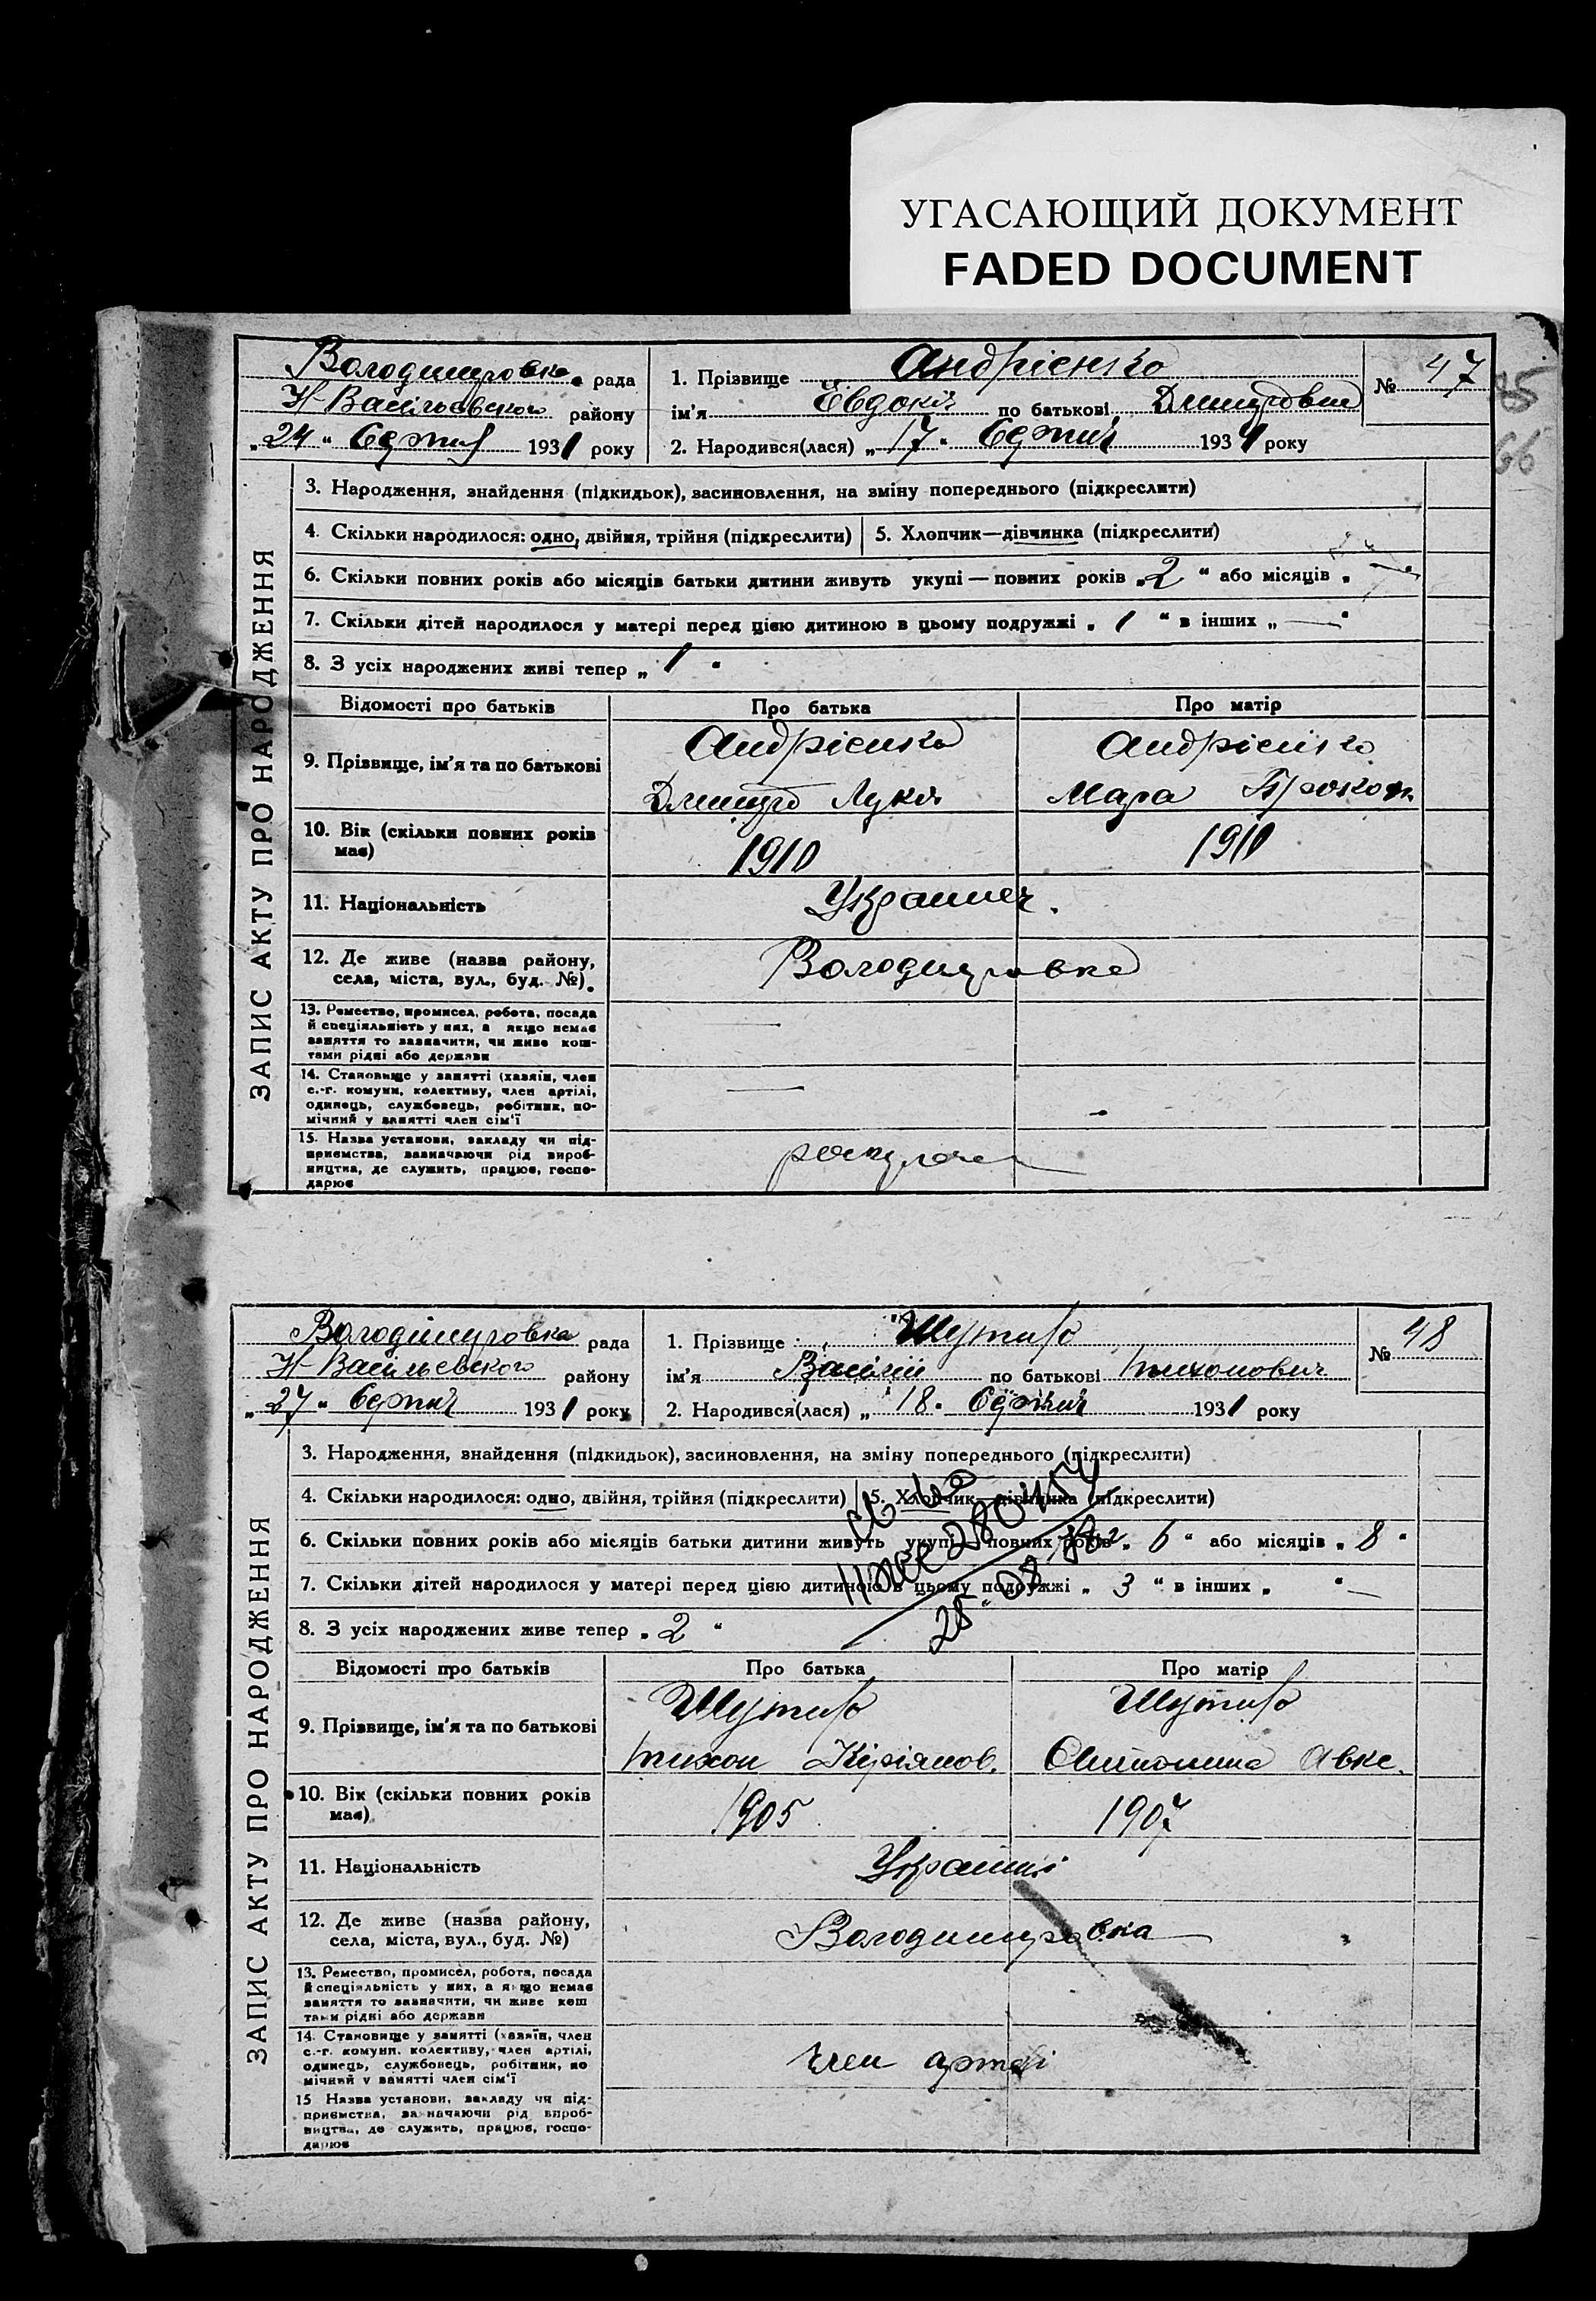 УГАСАЮЩИЙ ДОКУМЕНТ
FADED DOCUMENT
Володимировка рада
Н-Васільевского району
„24" Серпня 1931 року
1. Прізвище Андрієнко
ім'я Евдокія по батькові Дмитровна
2. Народився(лася) „17" Серпня 1931 року
№ 47
85
66
ЗАПИС АКТУ ПРО НАРОДЖЕННЯ
3. Народження, знайдення (підкидьок), засиновлення, на зміну попереднього (підкреслити)
4. Скільки народилося: одно, двійня, трійня (підкреслити) 5. Хлопчик—дівчинка (підкреслити)
6. Скільки повних років або місяців батьки дитини живуть укупі — повних років „2" або місяців „—"
7. Скільки дітей народилося у матері перед цією дитиною в цьому подружжі „1" в інших „—"
8. З усіх народжених живі тепер „1"
Відомості про батьків Про батька Про матір
9. Прізвище, ім'я та по батькові
Андрієнко Андрієнко
Дмитро Лукя Мара Прокоп
10. Вік (скільки повних років має) 1910 1910
11. Національність
12. Де живе (назва району,
села, міста, вул., буд. №) Володимировка
13. Ремество, промисел, робота, посада
й спеціяльність у них, а якщо немає
заняття то зазначити, чи живе кош-
тами рідні або держави
14. Становище у занятті (хазяїн, член
с.-г. комуни, колективу, член артілі,
одинець, службовець, робітник, по-
мічний у занятті член сім'ї
15. Назва установи, закладу чи під-
приємства, зазначаючи рід вироб-
ництва, де служить, працює, госпо-
дарює
Володімировка рада
Н-Васильевского району
„27" Серпня 1931 року
1. Прізвище Шутько
ім'я Василій по батькові Тихонович
2. Народився(лася) „18" Серпня 1931 року
№ 48
ЗАПИС АКТУ ПРО НАРОДЖЕННЯ
3. Народження, знайдення (підкидьок), засиновлення, на зміну попереднього (підкреслити)
4. Скільки народилося: одно, двійня, трійня (підкреслити) 5. Хлопчик—дівчинка (підкреслити)
6. Скільки повних років або місяців батьки дитини живуть укупі — повних років „6" або місяців „8"
7. Скільки дітей народилося у матері перед цією дитиною в цьому подружжі „3" в інших „—"
8. З усіх народжених живе тепер „2"
Відомості про батьків Про батька Про матір
9. Прізвище, ім'я та по батькові
Шутько Шутько
Тихон Кіріянов. Антонина Авке.
10. Вік (скільки повних років має) 1905 1907
11. Національність Українці
12. Де живе (назва району,
села, міста, вул., буд. №) Володимировка
13. Ремество, промисел, робота, посада
й спеціяльність у них, а якщо немає
заняття то зазначити, чи живе кош
тами рідні або держави
14. Становище у занятті (хазяїн, член
с.-г. комуни, колективу, член артілі,
одинець, службовець, робітник, по
мічний у занятті член сім'ї
член артілі
15 Назва установи, закладу чи під-
приємства, зазначаючи рід вироб-
ництва, де служить, працює, госпо-
дарює